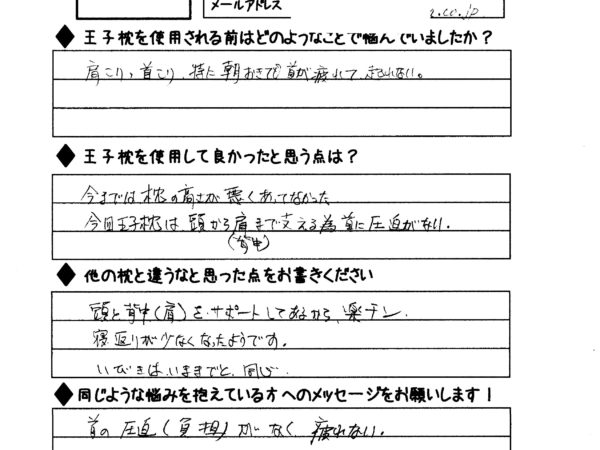 メールアドレス
◆王子枕を使用される前はどのようなことで悩んでいましたか？
肩こり、首こり、特に朝おきて首が疲れて、起られない。
◆王子枕を使用して良かったと思う点は？
今までは枕の高さが悪くあってなかった
今回王子枕は、頭から肩まで支える為首に圧迫がない。
(背中)
◆他の枕と違うなと思った点をお書きください
頭と背中(肩)をサポートしてあるから、楽チン。
寝返りが少なくなったようです。
いびきはいままでと、同じ。
◆同じような悩みを抱えている方へのメッセージをお願いします！
首の圧迫(負担)がなく、疲れない。